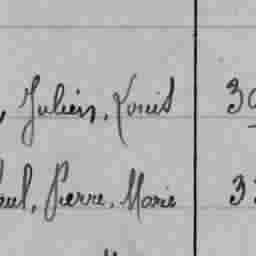 , Julien, Louis
Paul, Pierre, Marie